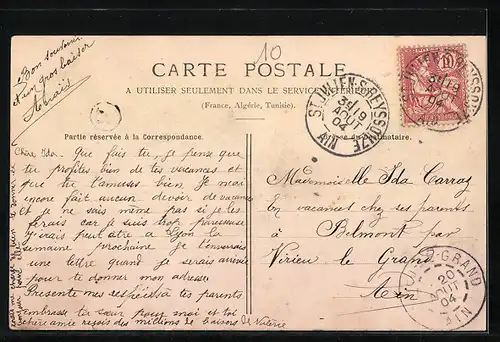 Bon souvenir
et un gros baiser
10
CARTE POSTALE
A UTILISER SEULEMENT DANS LE SERVICE INTÉRIEUR
(France, Algérie, Tunisie).
Partie réservée à la Correspondance.
Adresse du Destinataire.
ST JULIEN-S-REYSSOUZE
3E/19
AOUT
04
AIN
10
Chère Ida. Que fais tu, je pense que
tu profites bien de tes vacances et
que tu t'amuses bien. Je n'ai
encore fait aucun devoir de vacances
et je ne sais même pas si je les
ferais car je suis trop paresseuse
J'irais peut être à Lyon la
semaine prochaine je t'enverrais
une lettre quand je serais arrivée
pour te donner mon adresse
Présente mes respects à tes parents
embrasse ta sœur pour moi et toi
chère amie reçois des millions de baisers de Valérie
Mademoiselle Ida Carraz
en vacances chez ses parents
à Belmont par
Virieu le Grand
Ain
VIRIEU-LE-GRAND
20
AOUT
04
AIN